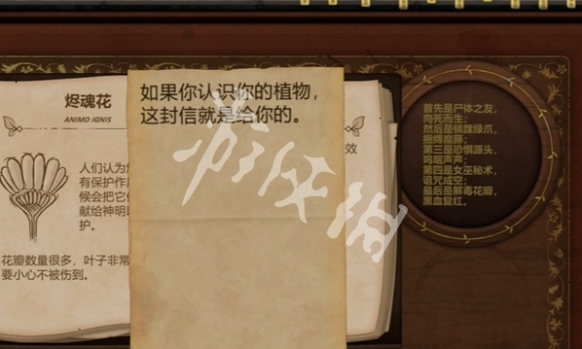 烬魂花
ANIMO IGNIS
人们认为
有保护作
候会把它
献给神明
护。
花瓣数量很多，叶子非常
要小心不被伤到。
如果你认识你的植物，
这封信就是给你的。
效
首先是尸体之友，
向死而生；
然后是
第三是恐惧源头，
呜咽声声；
第四是女巫秘术，
诅咒成空；
最后是解毒花瓣，
黑血复红。
游侠网